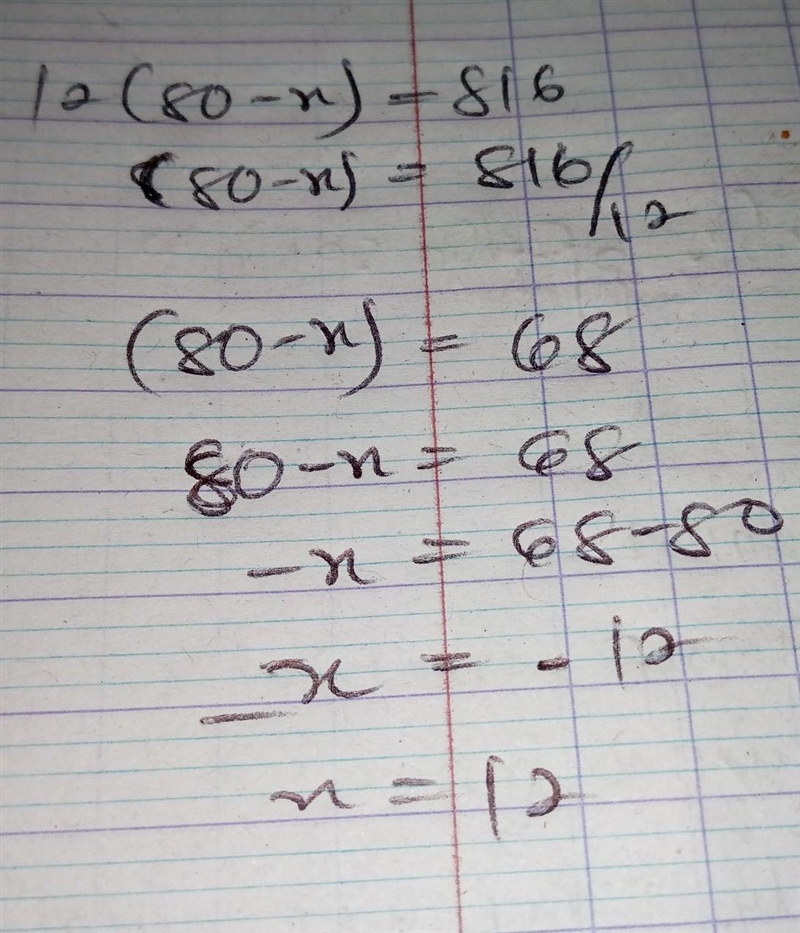 12(80-x)=816
(80-x) = 816/12
(80-x) = 68
80-x = 68
-x = 68-80
-x = -12
x = 12